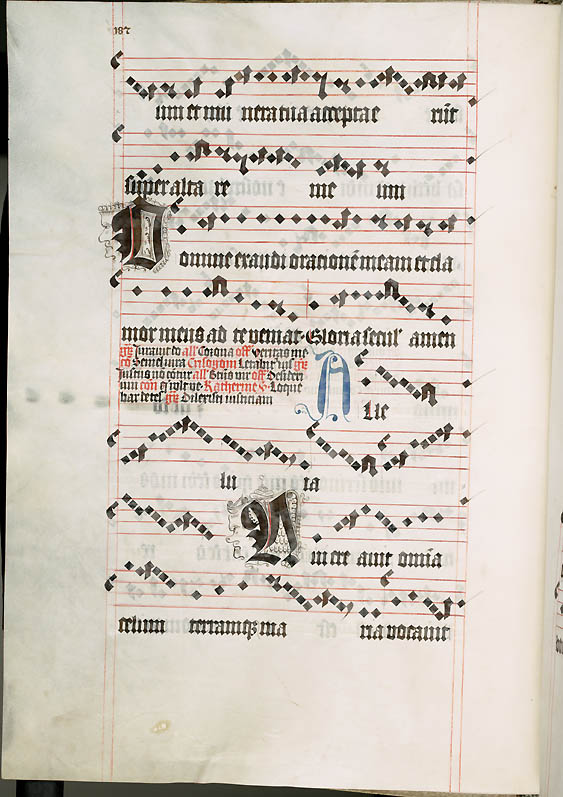 187
um et mu nera tua accepta e rūt
super alta re me um
Domine exaudi orationē meam et cla
mor meus ad te veniat. Gloria seculꝝ amen
gꝛ Jurauit do all' Corona off' Veritas me
cō Semel iura Crisogoni Letabit' ius gꝛ
Justus nō cōtur all' off' Desideri
um con Katherine v. Loque
bar de tes gꝛ Dilexisti iusticiam
A lle
lu ia
Qui et aut omīa
celum terramqꝫ ma ria vocauit